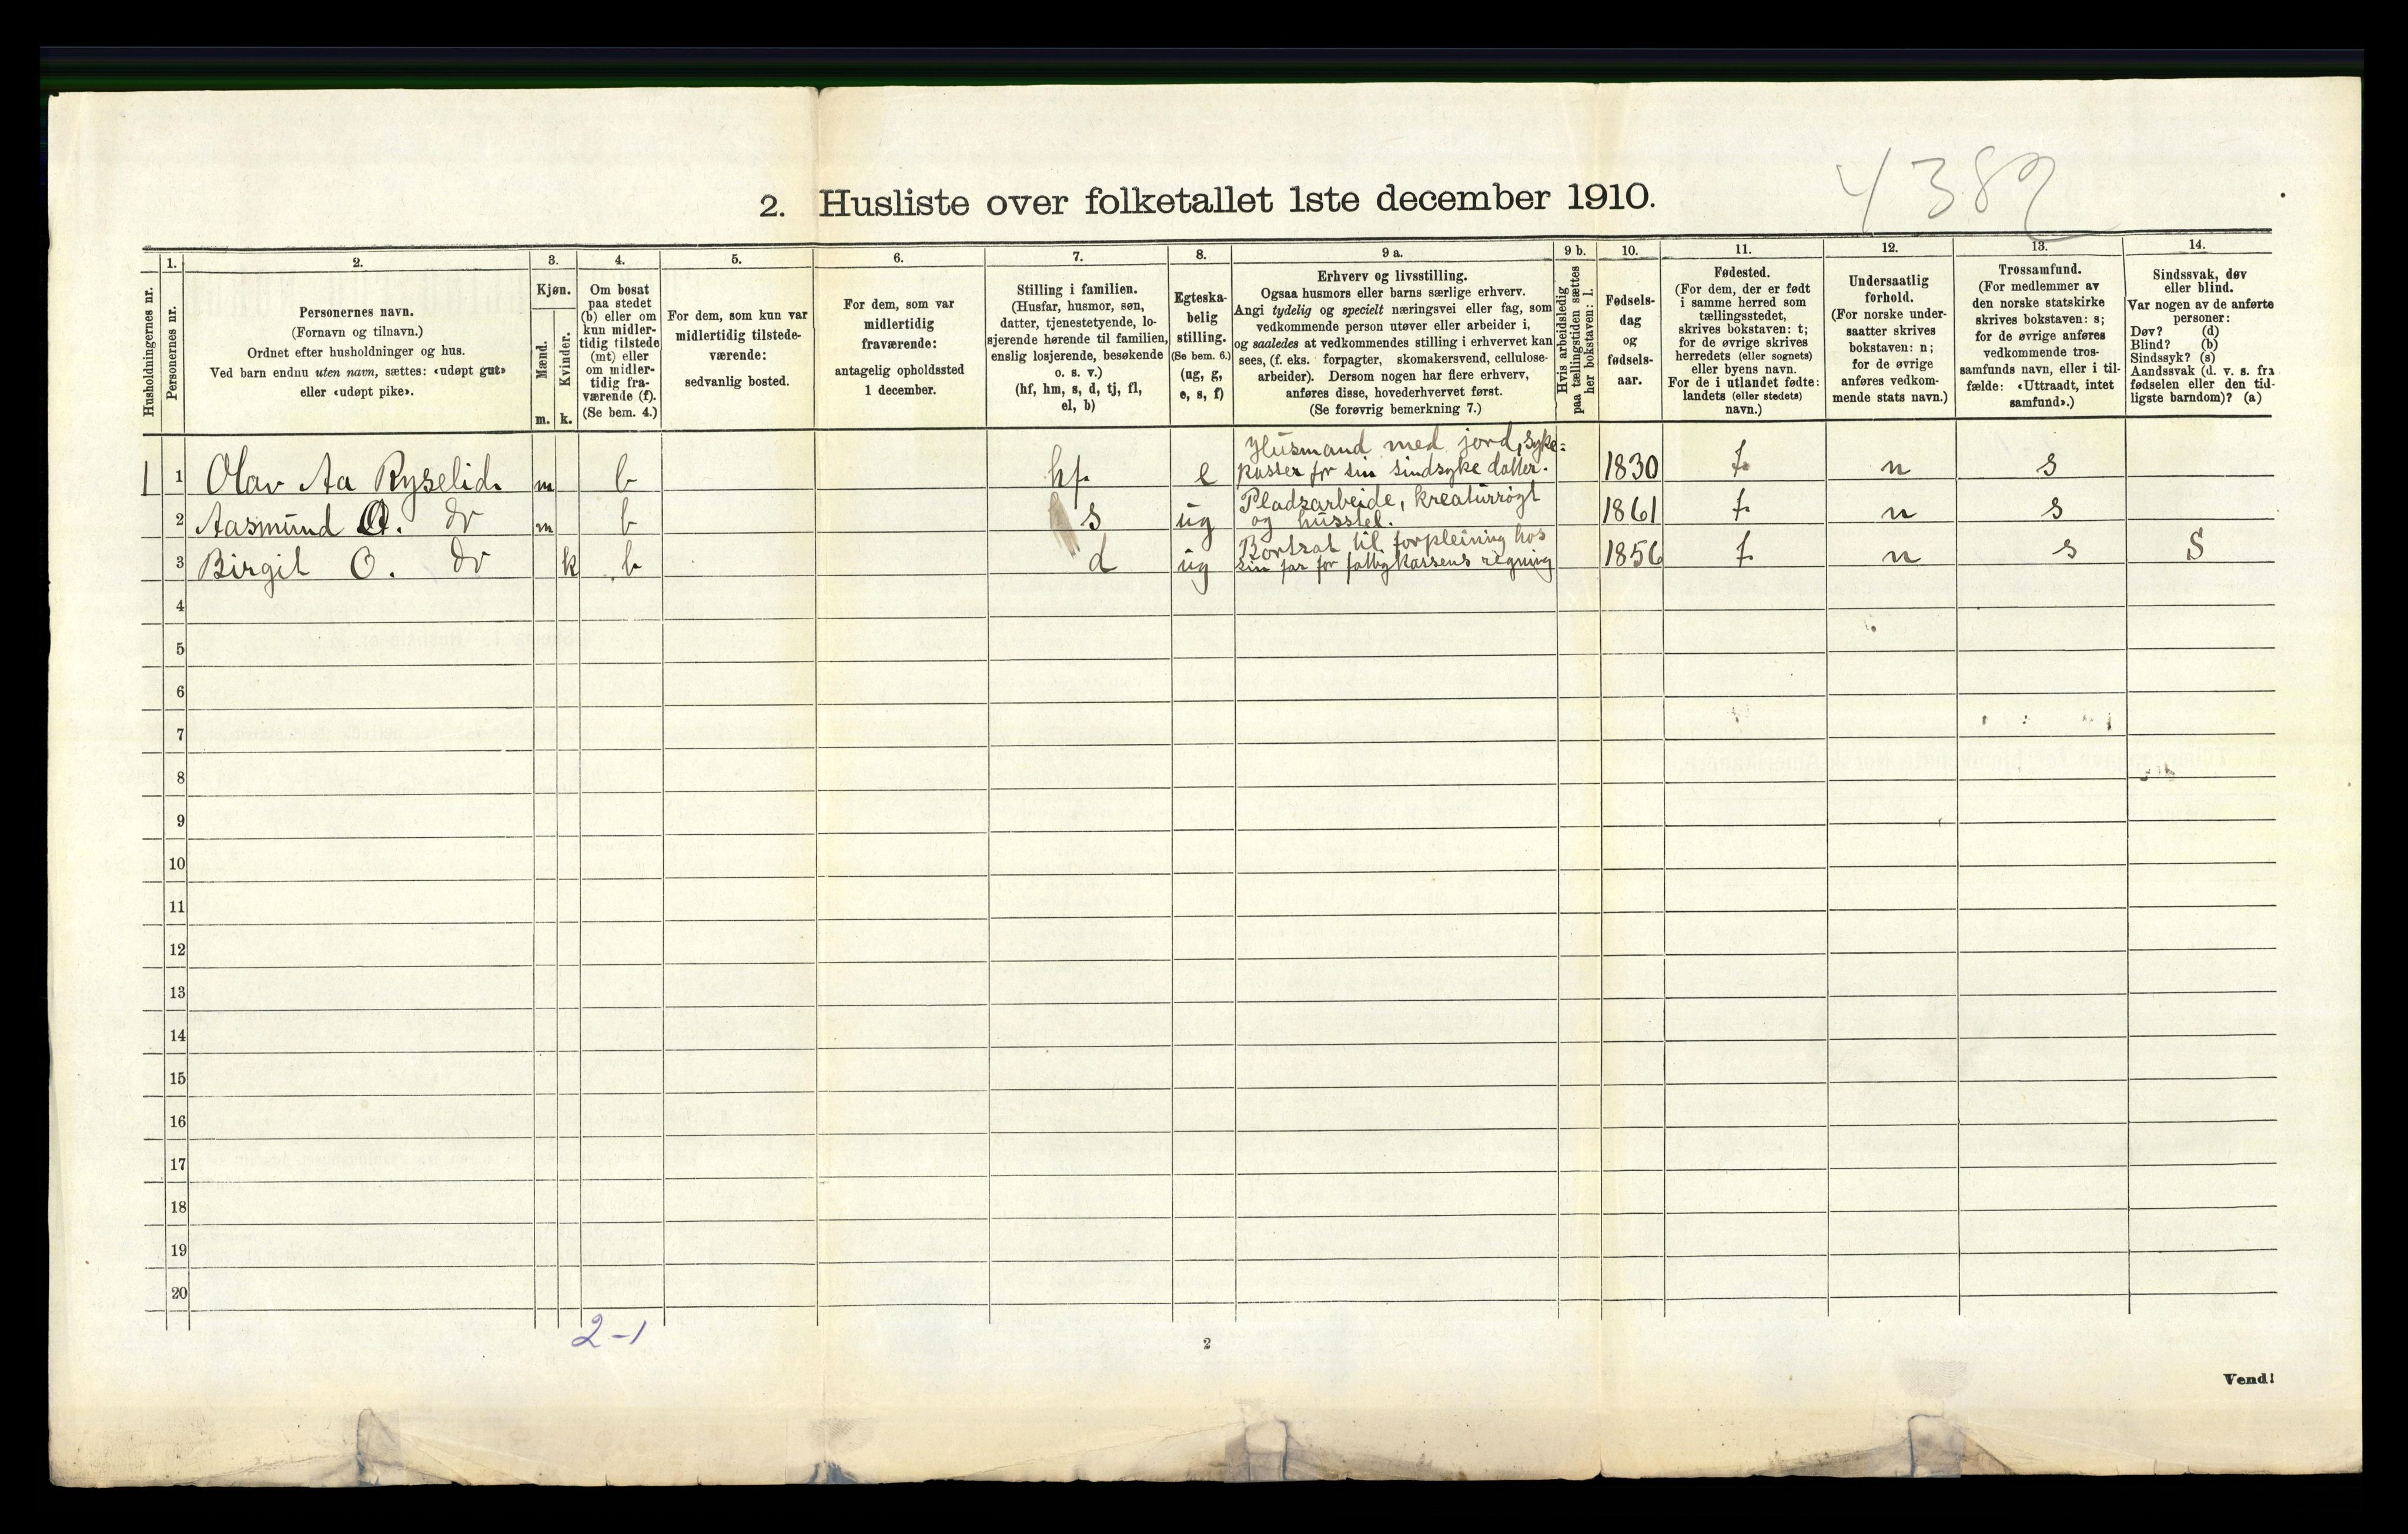 4382
2. Husliste over folketallet 1ste december 1910.
1. 2. 3. 4. 5. 6. 7. 8. 9 a. 9 b. 10. 11. 12. 13. 14.
Husholdningernes nr.
Personernes nr.
Personernes navn.
(Fornavn og tilnavn.)
Ordnet efter husholdninger og hus.
Ved barn endnu uten navn, sættes: «udøpt gut»
eller «udøpt pike».
Kjøn.
Mænd.
Kvinder.
m. k.
Om bosat
paa stedet
(b) eller om
kun midler-
tidig tilstede
(mt) eller
om midler-
tidig fra-
værende (f).
(Se bem. 4.)
For dem, som kun var
midlertidig tilstede-
værende:
sedvanlig bosted.
For dem, som var
midlertidig
fraværende:
antagelig opholdssted
1 december.
Stilling i familien.
(Husfar, husmor, søn,
datter, tjenestetyende, lo-
sjerende hørende til familien,
enslig losjerende, besøkende
o. s. v.)
(hf, hm, s, d, tj, fl,
el, b)
Egteska-
belig
stilling.
(Se bem. 6.)
(ug, g,
e, s, f)
Erhverv og livsstilling.
Ogsaa husmors eller barns særlige erhverv.
Angi tydelig og specielt næringsvei eller fag, som
vedkommende person utøver eller arbeider i,
og saaledes at vedkommendes stilling i erhvervet kan
sees, (f. eks. forpagter, skomakersvend, cellulose-
arbeider). Dersom nogen har flere erhverv,
anføres disse, hovederhvervet først.
(Se forøvrig bemerkning 7.)
Hvis arbeidsledig
paa tællingstiden sættes
her bokstaven: l.
Fødsels-
dag
og
fødsels-
aar.
Fødested.
(For dem, der er født
i samme herred som
tællingsstedet,
skrives bokstaven: t;
for de øvrige skrives
herredets (eller sognets)
eller byens navn.
For de i utlandet fødte:
landets (eller stedets)
navn.)
Undersaatlig
forhold.
(For norske under-
saatter skrives
bokstaven: n;
for de øvrige
anføres vedkom-
mende stats navn.)
Trossamfund.
(For medlemmer av
den norske statskirke
skrives bokstaven: s;
for de øvrige anføres
vedkommende tros-
samfunds navn, eller i til-
fælde: «Uttraadt, intet
samfund».)
Sindssvak, døv
eller blind.
Var nogen av de anførte
personer:
Døv? (d)
Blind? (b)
Sindssyk? (s)
Aandssvak (d. v. s. fra
fødselen eller den tid-
ligste barndom)? (a)
1 1 Olav Aa Ryselid. m b hf. e Husmand med jord, syke-
passer for sin sindsyke datter. 1830 t. n s
2 Aasmund O. do m b s ug Pladsarbeide, kreaturrøgt
og husstel. 1861 t. n s
3 Birgit O. do k b d ug Bortsat til forpleining hos
sin far for fattigkassens regning 1856 t. n s S
4
5
6
7
8
9
10
11
12
13
14
15
16
17
18
19
20
2-1
2
Vend!